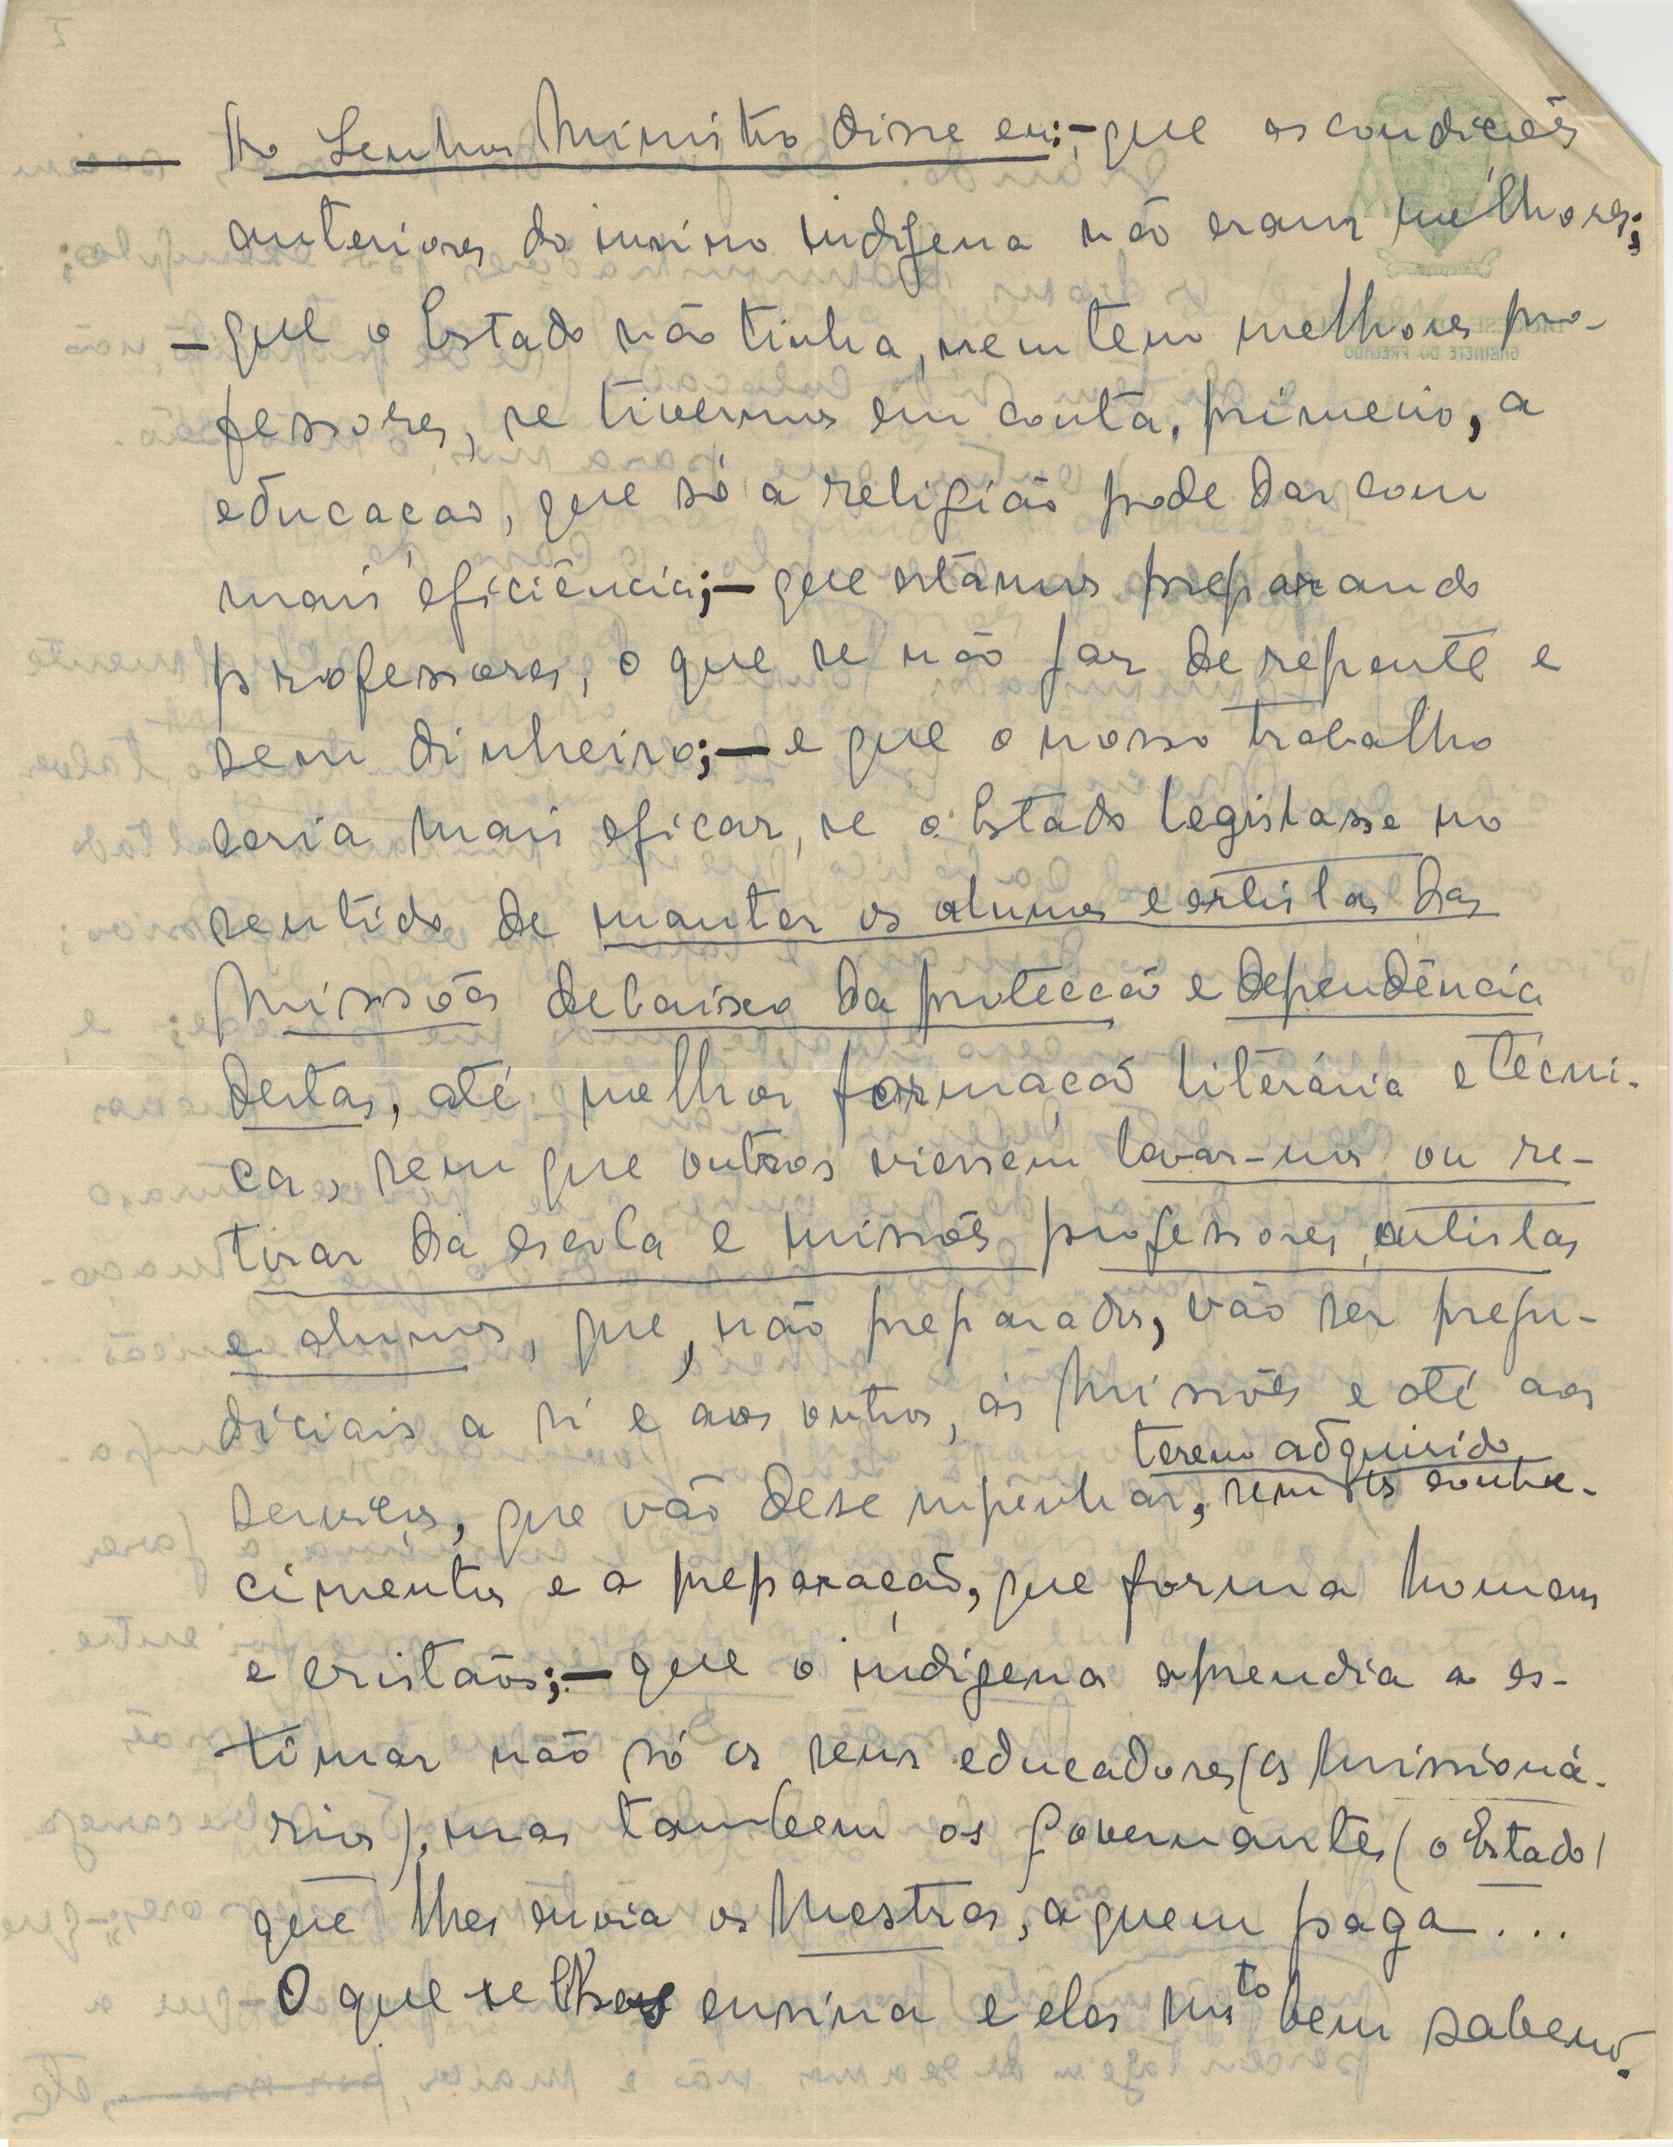 — Ao Senhor Ministro disse eu:- que as condições
anteriores do insino indígena não eram melhores;
- que o Estado não tinha, nem tem melhores pro-
fessores, se tivermos em conta, primeiro, a
educação, que só a religião pode dar com
mais eficiência;— que estamos preparando
professores, o que se não faz de repente e
sem dinheiro;— e que o nosso trabalho
seria mais eficaz, se o Estado legislasse no
sentido de manter os alunos e artistas das
Missões debaixo da protecção e dependência
destas, até melhor formação literária e técni-
ca, sem que outros viessem levar-nos ou re-
tirar da escola e missões professores, artistas
e alunos, que, não preparados, vão ser preju-
diciais a si e aos outros, às Missões e até aos
terem adquirido
serviços, que vão desempenhar, sem os conhe-
cimentos e a preparação, que forma homens
e cristãos;— que o indígena aprendia a es-
timar não só os seus educadores (os Missioná-
rios), mas tambem os governantes (o Estado)
que lhes envia os Mestres, a quem paga...
O que se lhes ensina e eles mto bem sabem.